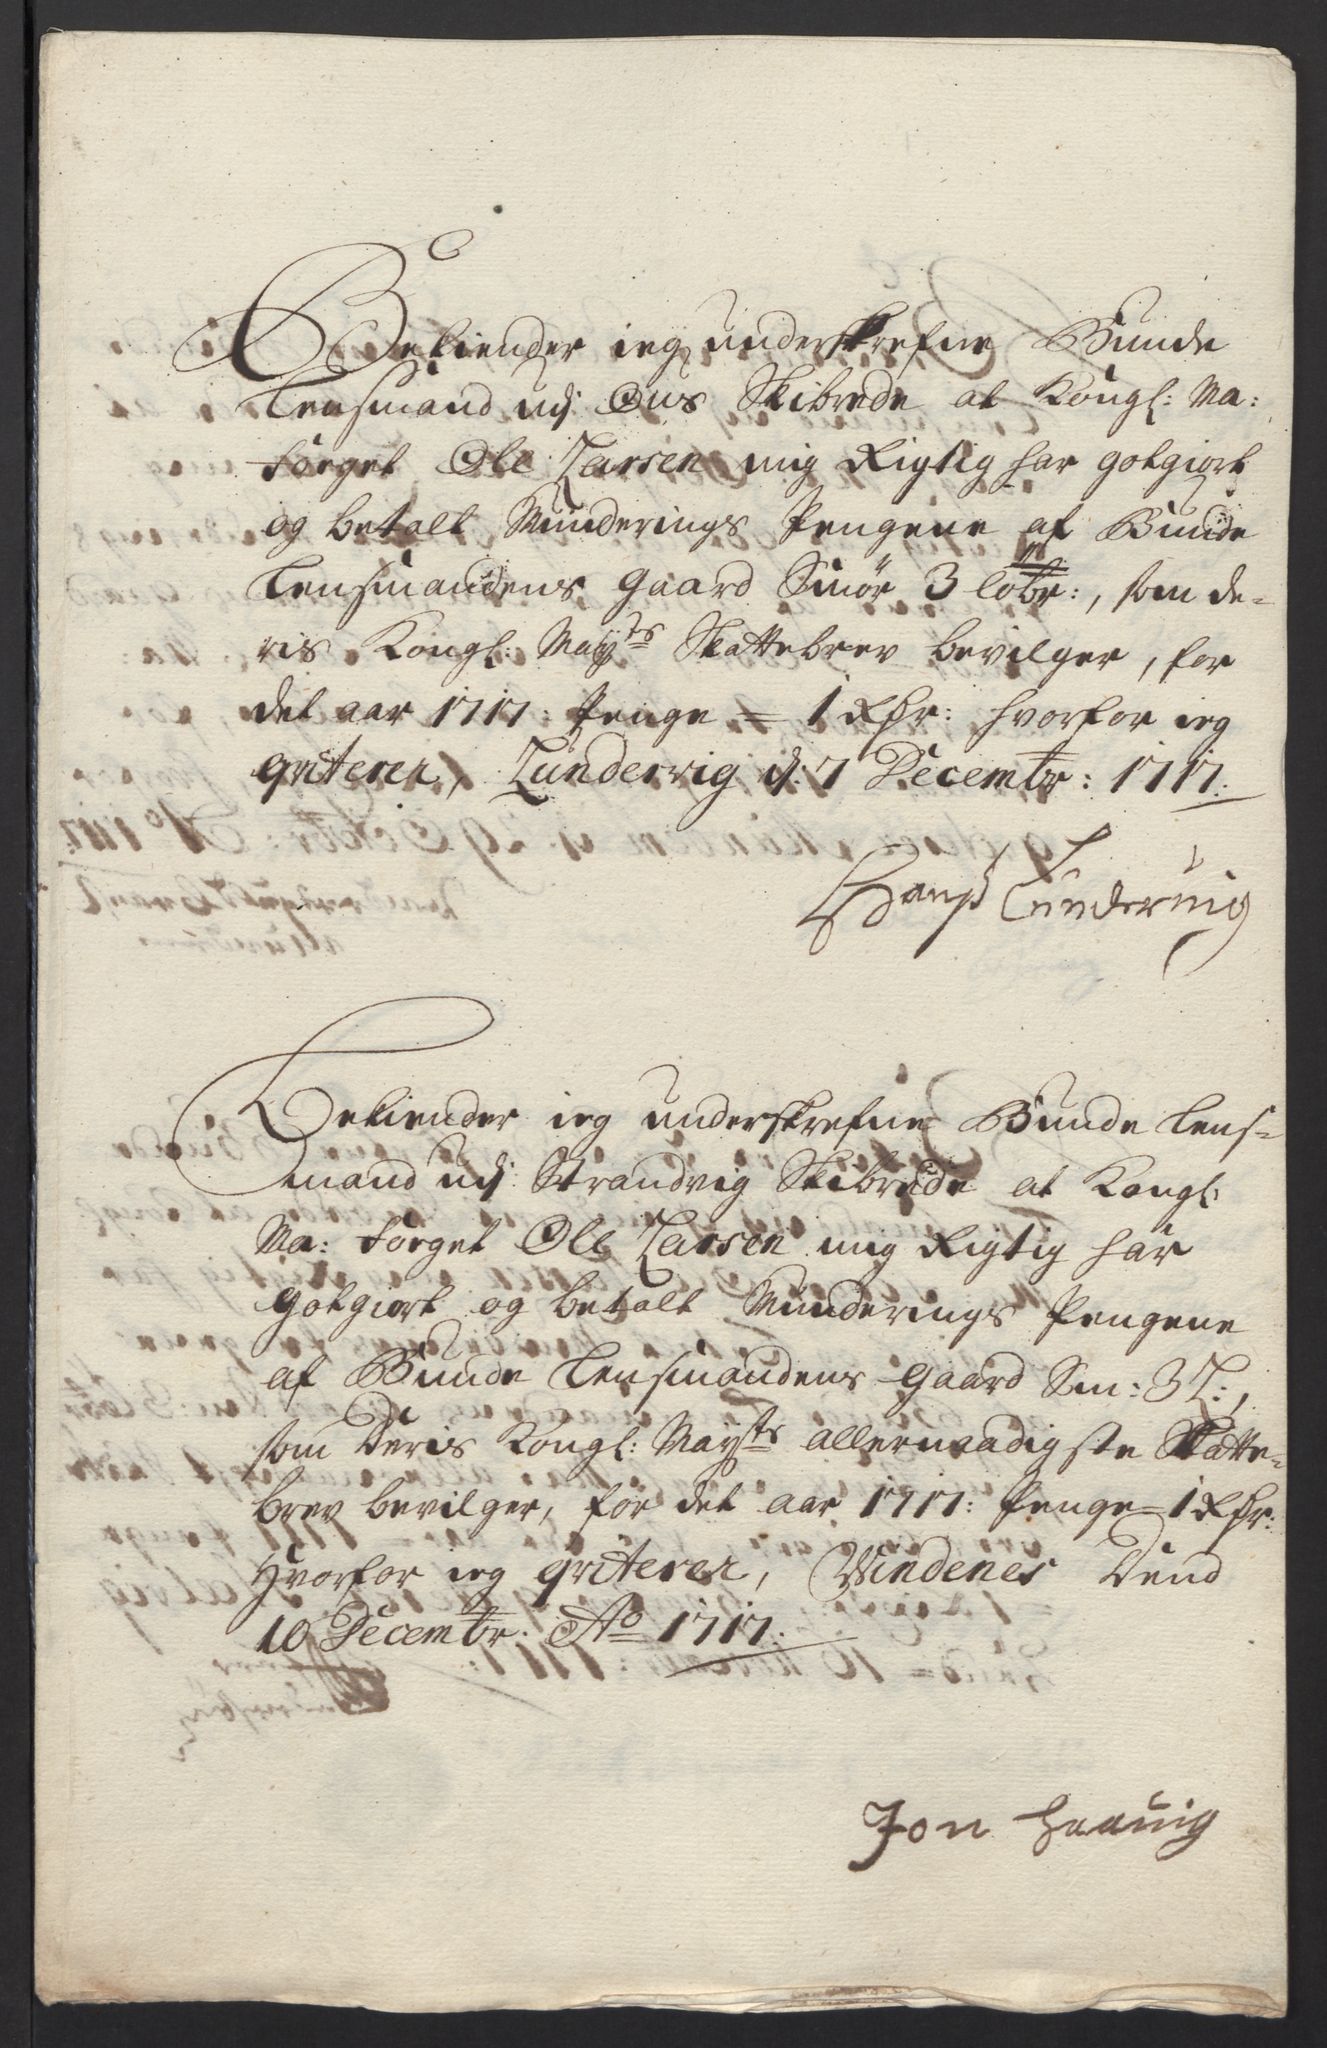 Bekiender ieg underskrefne Bunde
Lensmand udj Ous Skibrede at Kongl: Ma:
Foged Ole Larsen mig Rigtig har gotgiort
og betalt Munderings Pengene af Bunde
Lensmandens gaard Smör 3 löbr:, som de-
ris Kongl: Mayts Skattebrev bevilger, for
det aar 1717: Penge = 1 Rdr: hvorfor ieg
qviterer, Lundervig d: 7 Decembr: 1717.
Lundervig
Bekiender ieg underskrefne Bunde Lens-
mand udj Strandvig Skibrede at Kongl:
Ma: Foged Ole Larsen mig Rigtig har
gotgiort og betalt Munderings Pengene
af Bunde Lensmandens gaard Sm: 3 L:,
som Deris Kongl: Mayts allernaadigste Skatte-
brev bevilger, for det aar 1717: Penge = 1 Rdr:
Hvorfor ieg qviterer, Vindenes Dend
10 Decembr: Ao 1717.
Jon Haavig